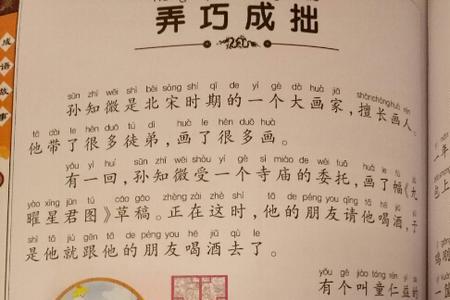 弄巧成拙
成语故事
sūn zhī wēi shì běi sòng shí qī de yí gè dà huà jiā shàn cháng huà rén
孙知微是北宋时期的一个大画家，擅长画人。
tā dài le hěn duō tú dì huà le hěn duō huà
他带了很多徒弟，画了很多画。
yǒu yì huí sūn zhī wēi shòu yí gè sì miào de wěi tuō huà le fú jiǔ
有一回，孙知微受一个寺庙的委托，画了幅《九
yào xīng jūn tú cǎo gǎo zhèng zài zhè shí tā de péng you qǐng tā hē jiǔ yú
曜星君图》草稿。正在这时，他的朋友请他喝酒，于
shì tā jiù gēn tā de péng you hē jiǔ qù le
是他就跟他的朋友喝酒去了。
yǒu gè jiào tóng rén
有个叫童仁
一年
包上